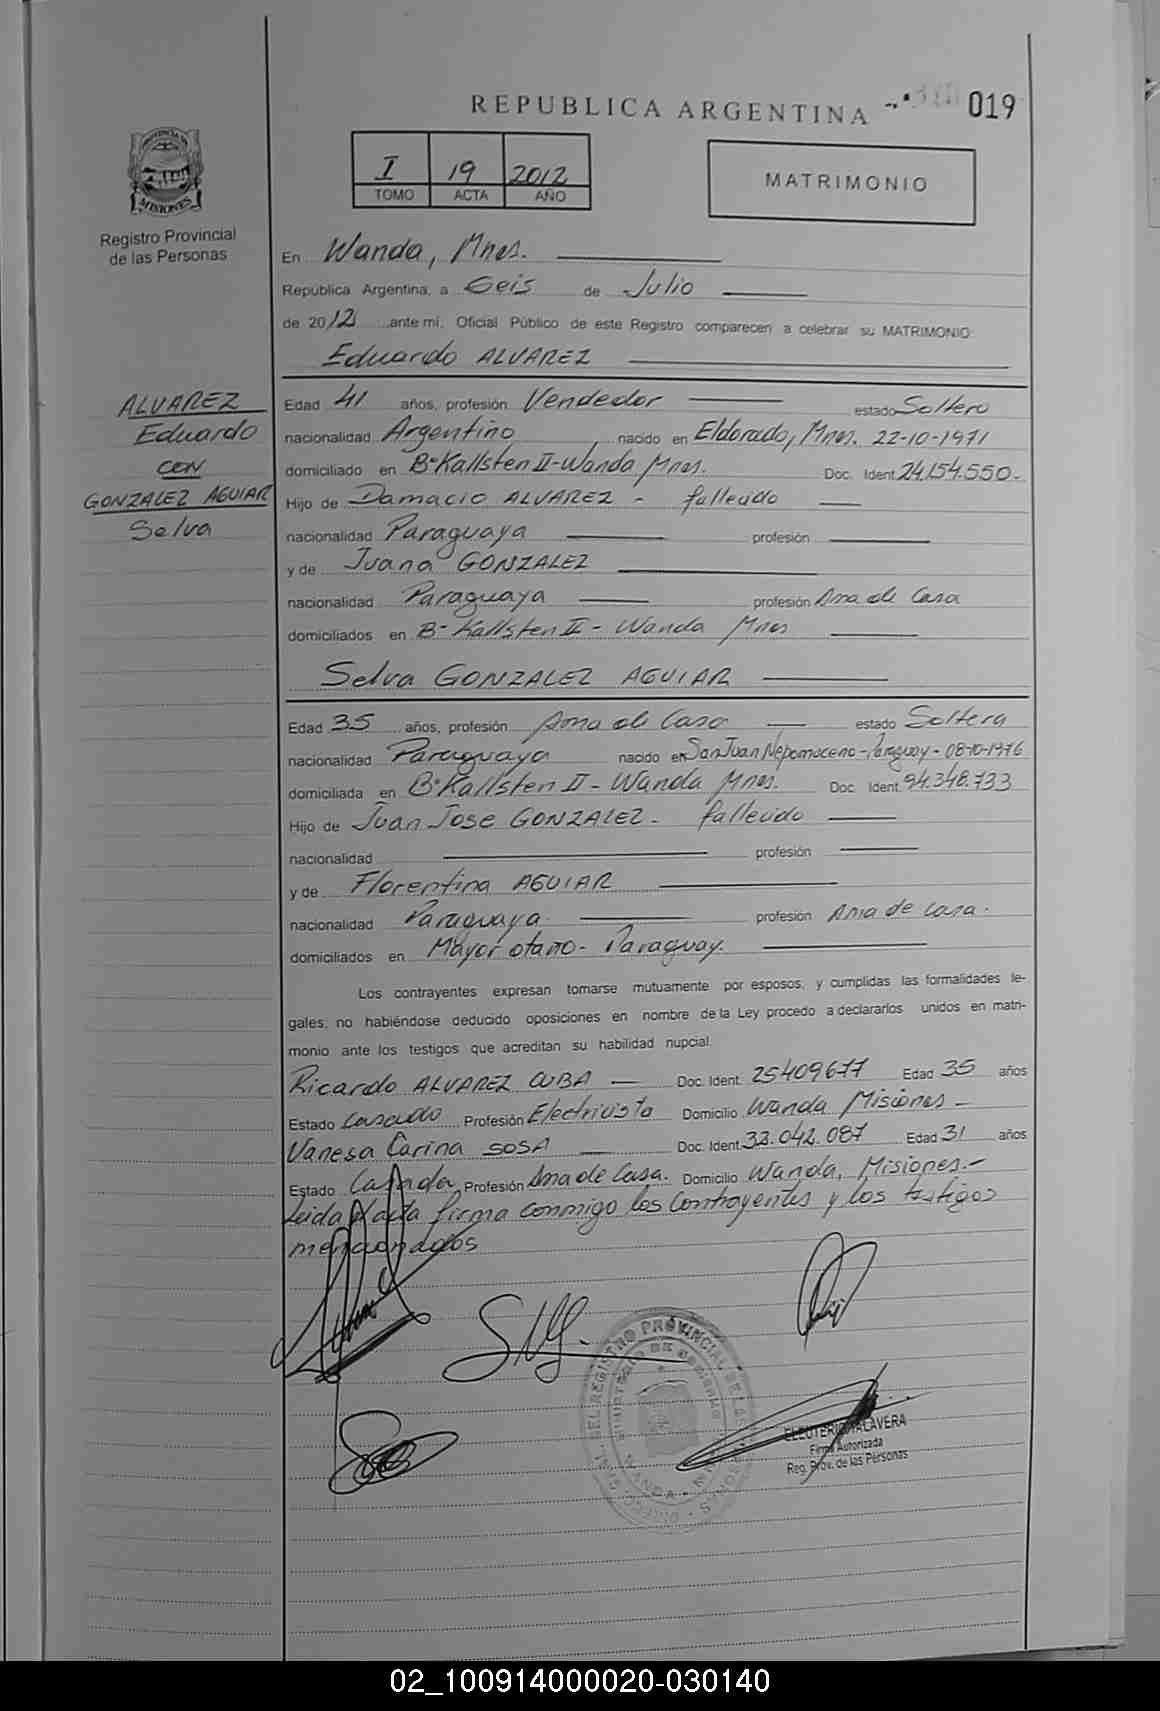 REPUBLICA ARGENTINA
019
PROVINCIA DE
MISIONES
Registro Provincial
de las Personas
I 19 2012
TOMO ACTA AÑO
MATRIMONIO
En Wanda, Mnes.
República Argentina, a Seis de Julio
de 2012 ante mí, Oficial Público de este Registro comparecen a celebrar su MATRIMONIO:
Eduardo ALVAREZ
ALVAREZ
Eduardo
CON
GONZALEZ AGUIAR
Selva
Edad 41 años, profesión Vendedor estado Soltero
nacionalidad Argentino nacido en Eldorado, Mnes. 22-10-1971
domiciliado en Bº Kallsten II - Wanda Mnes. Doc. Ident. 24.154.550.-
Hijo de Damacio ALVAREZ - fallecido
nacionalidad Paraguaya profesión
y de Juana GONZALEZ
nacionalidad Paraguaya profesión Ama de Casa
domiciliados en Bº Kallsten II - Wanda Mnes
Selva GONZALEZ AGUIAR
Edad 35 años, profesión Ama de Casa estado Soltera
nacionalidad Paraguaya nacido en San Juan Nepomuceno - Paraguay - 08-10-1976
domiciliada en Bº Kallsten II - Wanda Mnes. Doc. Ident. 94.348.733
Hijo de Juan Jose GONZALEZ - fallecido
nacionalidad profesión
y de Florentina AGUIAR
nacionalidad Paraguaya. profesión Ama de casa.
domiciliados en Mayor otaño - Paraguay.
Los contrayentes expresan tomarse mutuamente por esposos, y cumplidas las formalidades le-
gales, no habiéndose deducido oposiciones en nombre de la Ley procedo a declararlos unidos en matri-
monio ante los testigos que acreditan su habilidad nupcial.
Ricardo ALVAREZ CUBA Doc. Ident. 25409677 Edad 35 años
Estado Casado Profesión Electricista Domicilio Wanda Misiones -
Vanesa Carina SOSA Doc. Ident. 33.042.087 Edad 31 años
Estado Casada Profesión Ama de Casa. Domicilio Wanda, Misiones.-
Leida el acta firma conmigo los Contrayentes y los testigos
mencionados
ELEUTERIO TALAVERA
Firma Autorizada
Reg. Prov. de las Personas
02_100914000020-030140